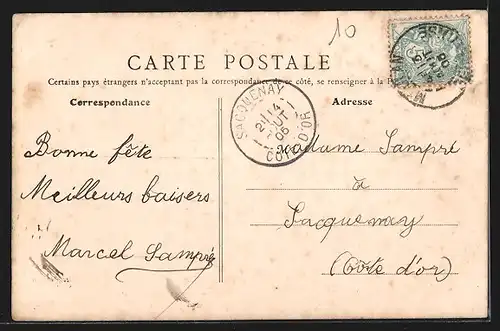 10
CARTE POSTALE
Certains pays étrangers n'acceptant pas la correspondance de ce côté, se renseigner à la
Correspondance
Adresse
SACQUENAY
14
AOUT
06
COTE D'OR
Bonne fête
Meilleurs baisers
Marcel Sampré
Madame Sampré
à
Sacquenay
(Côte d'or)